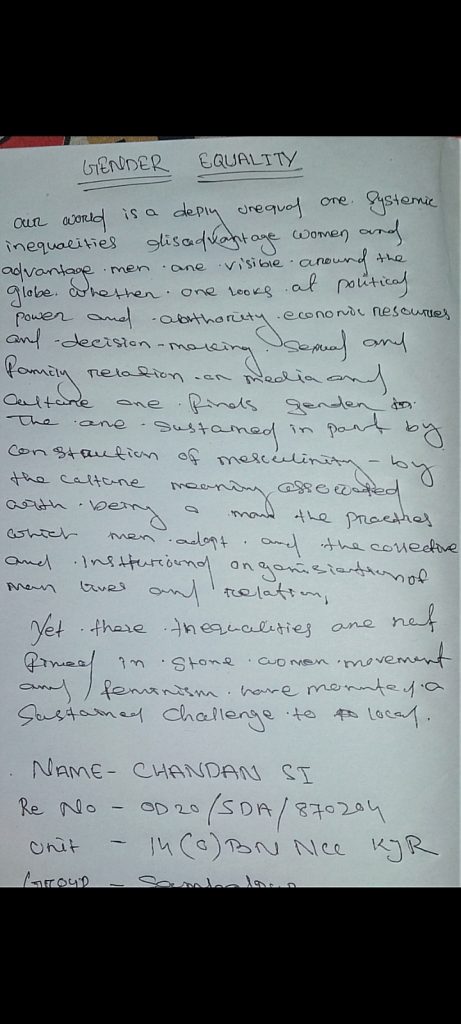 GENDER EQUALITY
our world is a deply unequal one. Systemic
inequalities disadvantage women and
advantage men are visible around the
globe. whether one looks at political
power and authority, economic resources
and decision-making. Sexual and
family relation or media and
Culture one finds gender
The are sustained in part by
construction of mesculinity - by
the culture meaning associated
with being a man the practies
which men adopt and the collective
and Institutional organisiation of
men lives and relation,
Yet there inequalities are not
fixed in stone women movement
and feminism have mounted a
Sustained Challenge to local.
NAME- CHANDAN SI
Re No - OD20/SDA/870204
unit - 14 (O) BN Ncc KJR
GROUP -